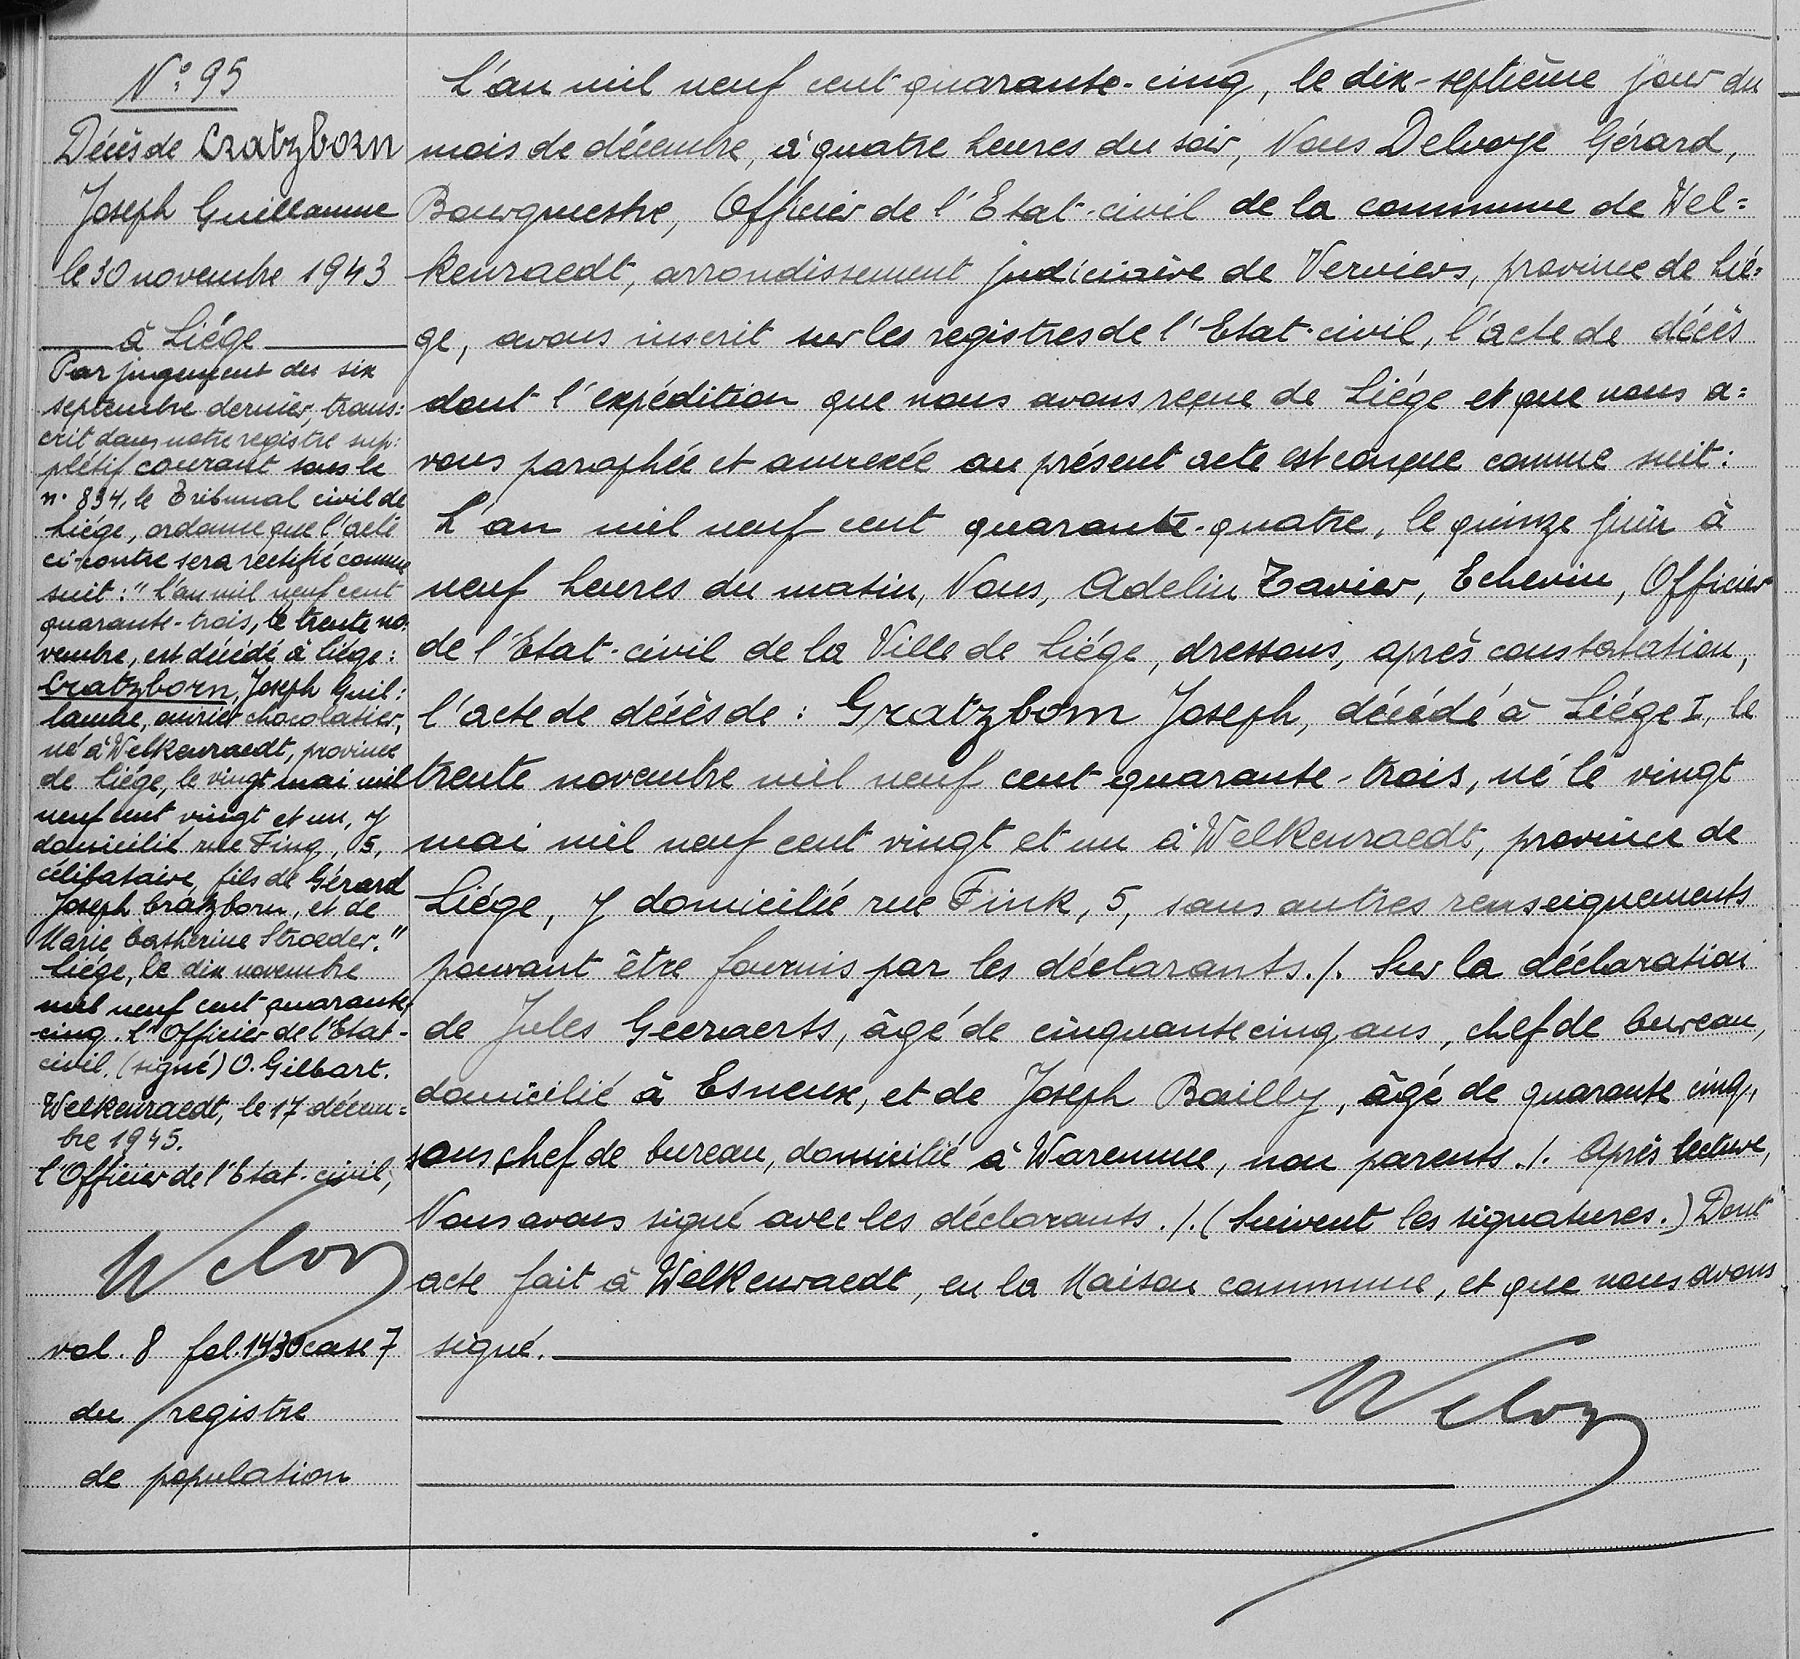 N° 95
Décès de Cratzborn
Joseph Guillaume
le 30 novembre 1943
à Liége
Par jugement du six
septembre dernier, trans:
crit dans notre registre sup:
plétif courant sous le
n° 834, le Tribunal civil de
Liége, ordonne que l'acte
ci-contre sera rectifié comme
suit: "L'an mil neuf cent
quarante-trois, le trente no:
vembre, est décédé à Liége:
Cratzborn, Joseph Guil:
laume, ouvrier chocolatier,
né à Welkenraedt, province
de Liége, le vingt mai mil
neuf cent vingt et un, y
domicilié rue Fing, 5,
célibataire, fils de Gérard
Joseph Cratzborn, et de
Marie Catherine Stroeder."
Liége, le dix novembre
mil neuf cent quarante
cinq. L'Officier de l'Etat-
civil. (signé) O. Gilbart.
Welkenraedt, le 17 décem=
bre 1945.
l'Officier de l'Etat-civil,
vol. 8 fol. 1430 case 7
du registre
de population
L'an mil neuf cent quarante-cinq, le dix-septième jour du
mois de décembre, à quatre heures du soir, Nous Delvoye Gérard,
Bourgmestre, Officier de l'Etat-civil de la commune de Wel=
kenraedt, arrondissement judiciaire de Verviers, province de Lié=
ge, avons inscrit sur les registres de l'Etat-civil, l'acte de décès
dont l'expédition que nous avons reçue de Liége et que nous a=
vons paraphée et annexée au présent acte est conçue comme suit:
L'an mil neuf cent quarante-quatre, le quinze juin à
neuf heures du matin, Nous, Adelin Tavier, Echevin, Officier
de l'Etat-civil de la Ville de Liége, dressons, après constatation,
l'acte de décès de: Gratzborn Joseph, décédé à Liége I, le
trente novembre mil neuf cent quarante-trois, né le vingt
mai mil neuf cent vingt et un à Welkenraedt, province de
Liége, y domicilié rue Fink, 5, sans autres renseignements
pouvant être fournis par les déclarants./. Sur la déclaration
de Jules Geeraerts, âgé de cinquante cinq ans, chef de bureau,
domicilié à Esneux, et de Joseph Bailly, âgé de quarante cinq,
sous chef de bureau, domicilié à Waremme, non parents./. Après lecture,
Nous avons signé avec les déclarants./. (Suivent les signatures.) Dont
acte fait à Welkenraedt, en la Maison commune, et que nous avons
signé.